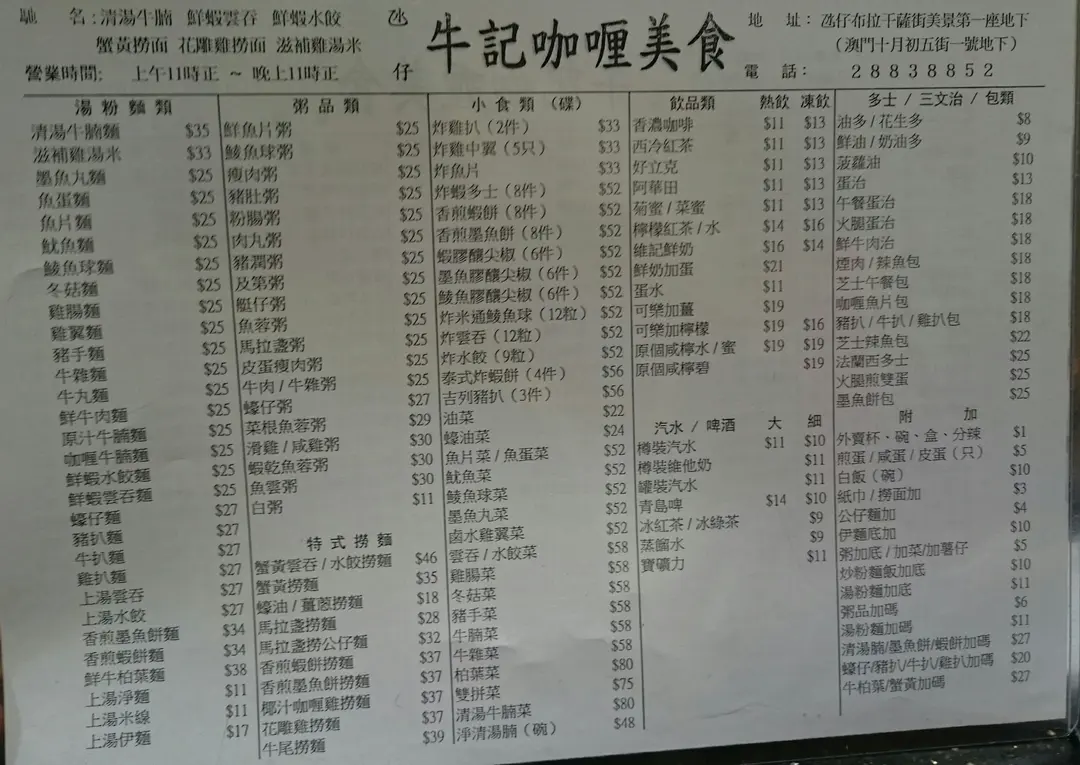 馳 名:清湯牛腩 鮮蝦雲吞 鮮蝦水餃
蟹黃撈麵 花雕雞撈面 滋補雞湯米
營業時間: 上午11時正 ~ 晚上11時正
氹仔
牛記咖喱美食
地 址: 氹仔布拉干薩街美景第一座地下
(澳門十月初五街一號地下)
電 話: 28838852
湯粉麵類
清湯牛腩麵 $35
滋補雞湯米 $33
墨魚丸麵 $25
魚蛋麵 $25
魚片麵 $25
魷魚麵 $25
鯪魚球麵 $25
冬菇麵 $25
雞腸麵 $25
雞翼麵 $25
豬手麵 $25
牛雜麵 $25
牛丸麵 $25
鮮牛肉麵 $25
原汁牛腩麵 $25
咖喱牛腩麵 $25
鮮蝦水餃麵 $25
鮮蝦雲吞麵 $25
蠔仔麵 $27
豬扒麵 $27
牛扒麵 $27
雞扒麵 $27
上湯雲吞 $27
上湯水餃 $27
香煎墨魚餅麵 $34
香煎蝦餅麵 $34
鮮牛柏葉麵 $38
上湯淨麵 $11
上湯米線 $11
上湯伊麵 $17
粥品類
鮮魚片粥 $25
鯪魚球粥 $25
瘦肉粥 $25
豬肚粥 $25
粉腸粥 $25
肉丸粥 $25
豬潤粥 $25
及第粥 $25
艇仔粥 $25
魚蓉粥 $25
馬拉盞粥 $25
皮蛋瘦肉粥 $25
牛肉 / 牛雜粥 $25
蠔仔粥 $27
菜根魚蓉粥 $29
滑雞 / 咸雞粥 $30
蝦乾魚蓉粥 $30
魚雲粥 $30
白粥 $11
特式撈麵
蟹黃雲吞 / 水餃撈麵 $46
蟹黃撈麵 $35
蠔油 / 薑蔥撈麵 $18
馬拉盞撈麵 $28
馬拉盞撈公仔麵 $32
香煎蝦餅撈麵 $37
香煎墨魚餅撈麵 $37
椰汁咖喱雞撈麵 $37
花雕雞撈麵 $37
牛尾撈麵 $39
小食類(碟)
炸雞扒(2件) $33
炸雞中翼(5只) $33
炸魚片 $33
炸蝦多士(8件) $52
香煎蝦餅(8件) $52
香煎墨魚餅(8件) $52
蝦膠釀尖椒(6件) $52
墨魚膠釀尖椒(6件) $52
鯪魚膠釀尖椒(6件) $52
炸米通鯪魚球(12粒) $52
炸雲吞(12粒) $52
炸水餃(9粒) $52
泰式炸蝦餅(4件) $56
吉列豬扒(3件) $56
油菜 $22
蠔油菜 $24
魚片菜 / 魚蛋菜 $52
魷魚菜 $52
鯪魚球菜 $52
墨魚丸菜 $52
鹵水雞翼菜 $52
雲吞 / 水餃菜 $58
雞腸菜 $58
冬菇菜 $58
豬手菜 $58
牛腩菜 $58
牛雜菜 $58
柏葉菜 $80
雙拼菜 $75
清湯牛腩菜 $80
淨清湯腩(碗) $48
飲品類 熱飲 凍飲
香濃咖啡 $11 $13
西冷紅茶 $11 $13
好立克 $11 $13
阿華田 $11 $13
菊蜜 / 菜蜜 $11 $13
檸檬紅茶 / 水 $14 $16
維記鮮奶 $16 $14
鮮奶加蛋 $21
蛋水 $11
可樂加薑 $19
可樂加檸檬 $19 $16
原個咸檸水 / 蜜 $19 $19
原個咸檸碧 $19
汽水 / 啤酒 大 細
樽裝汽水 $11 $10
樽裝維他奶 $11
罐裝汽水 $11
青島啤 $14 $10
冰紅茶 / 冰綠茶 $9
蒸餾水 $9
寶礦力 $11
多士 / 三文治 / 包類
油多 / 花生多 $8
鮮油 / 奶油多 $9
菠蘿油 $10
蛋治 $13
午餐蛋治 $18
火腿蛋治 $18
鮮牛肉治 $18
煙肉 / 辣魚包 $18
芝士午餐包 $18
咖喱魚片包 $18
豬扒 / 牛扒 / 雞扒包 $18
芝士辣魚包 $22
法蘭西多士 $25
火腿煎雙蛋 $25
墨魚餅包 $25
附 加
外賣杯、碗、盒、分辣 $1
煎蛋 / 咸蛋 / 皮蛋(只) $5
白飯(碗) $10
紙巾 / 撈面加 $3
公仔麵加 $4
伊麵底加 $10
粥加底 / 加菜/加薯仔 $5
炒粉麵飯加底 $10
湯粉麵加底 $11
粥品加碼 $6
湯粉麵加碼 $11
清湯腩/墨魚餅/蝦餅加碼 $27
蠔仔/豬扒/牛扒/雞扒加碼 $20
牛柏葉/蟹黃加碼 $27